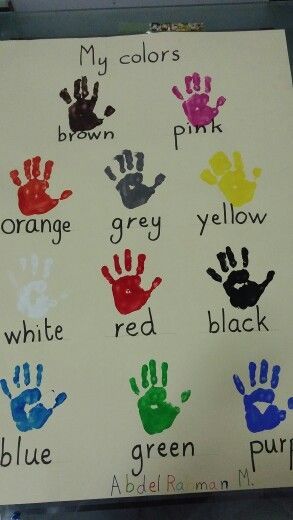 My colors
brown pink
orange grey yellow
white red black
blue green purp
Abdel Rahman M.